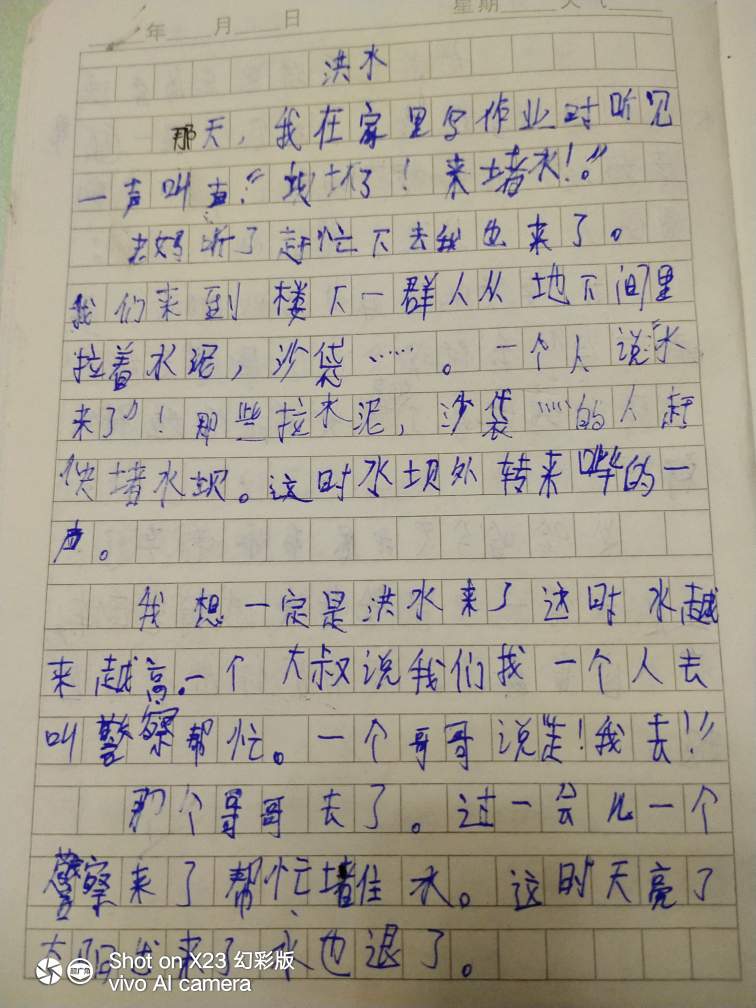 年 月 日 星期 天气
洪水
那天，我在家里写作业时听见
一声叫声：“找坏了！来堵水！”
老妈听了赶忙下去我也来了。
我们来到楼下一群人从地下间里
拉着水泥，沙袋……。一个人说“水
来了”！那些拉水泥，沙袋……的人赶
快堵水坝。这时水坝外转来哗的一
声。
我想一定是洪水来了这时水越
来越高。一个大叔说我们找一个人去
叫警察帮忙。一个哥哥说道！我去！”
那个哥哥去了。过一会儿一个
警察来了帮忙堵住水。这时天亮了
太阳出来了水也退了。
Shot on X23 幻彩版
vivo AI camera